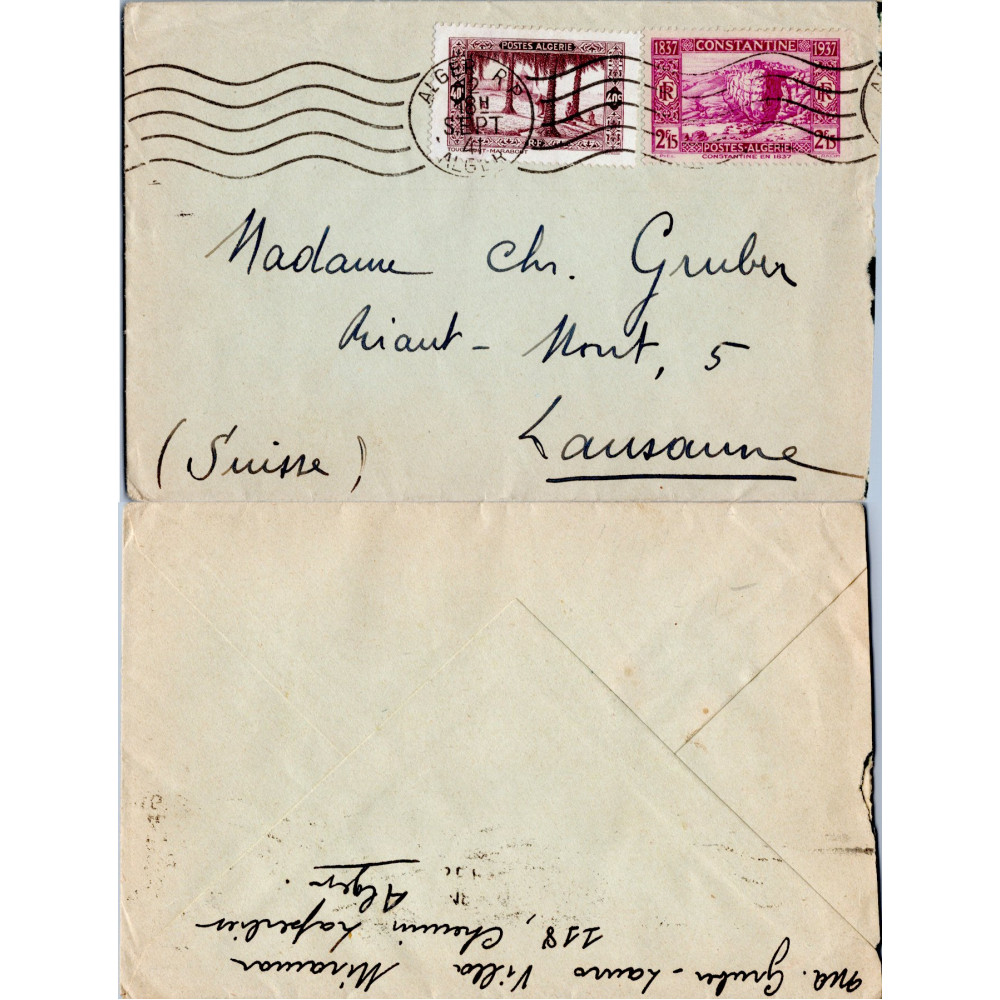 POSTES ALGERIE
40c
TOUG MARABOUT
RF
1837 CONSTANTINE 1937
RF RF
2F15 POSTES-ALGERIE 2F15
CONSTANTINE EN 1837
ALGER R.P
18H
SEPT
41
ALGER
Madame Chr. Gruber
Riant-Mont, 5
Lausanne
(Suisse)
Gruber-Lauro Villa Miramar
118, Chemin Laperlier
Alger.